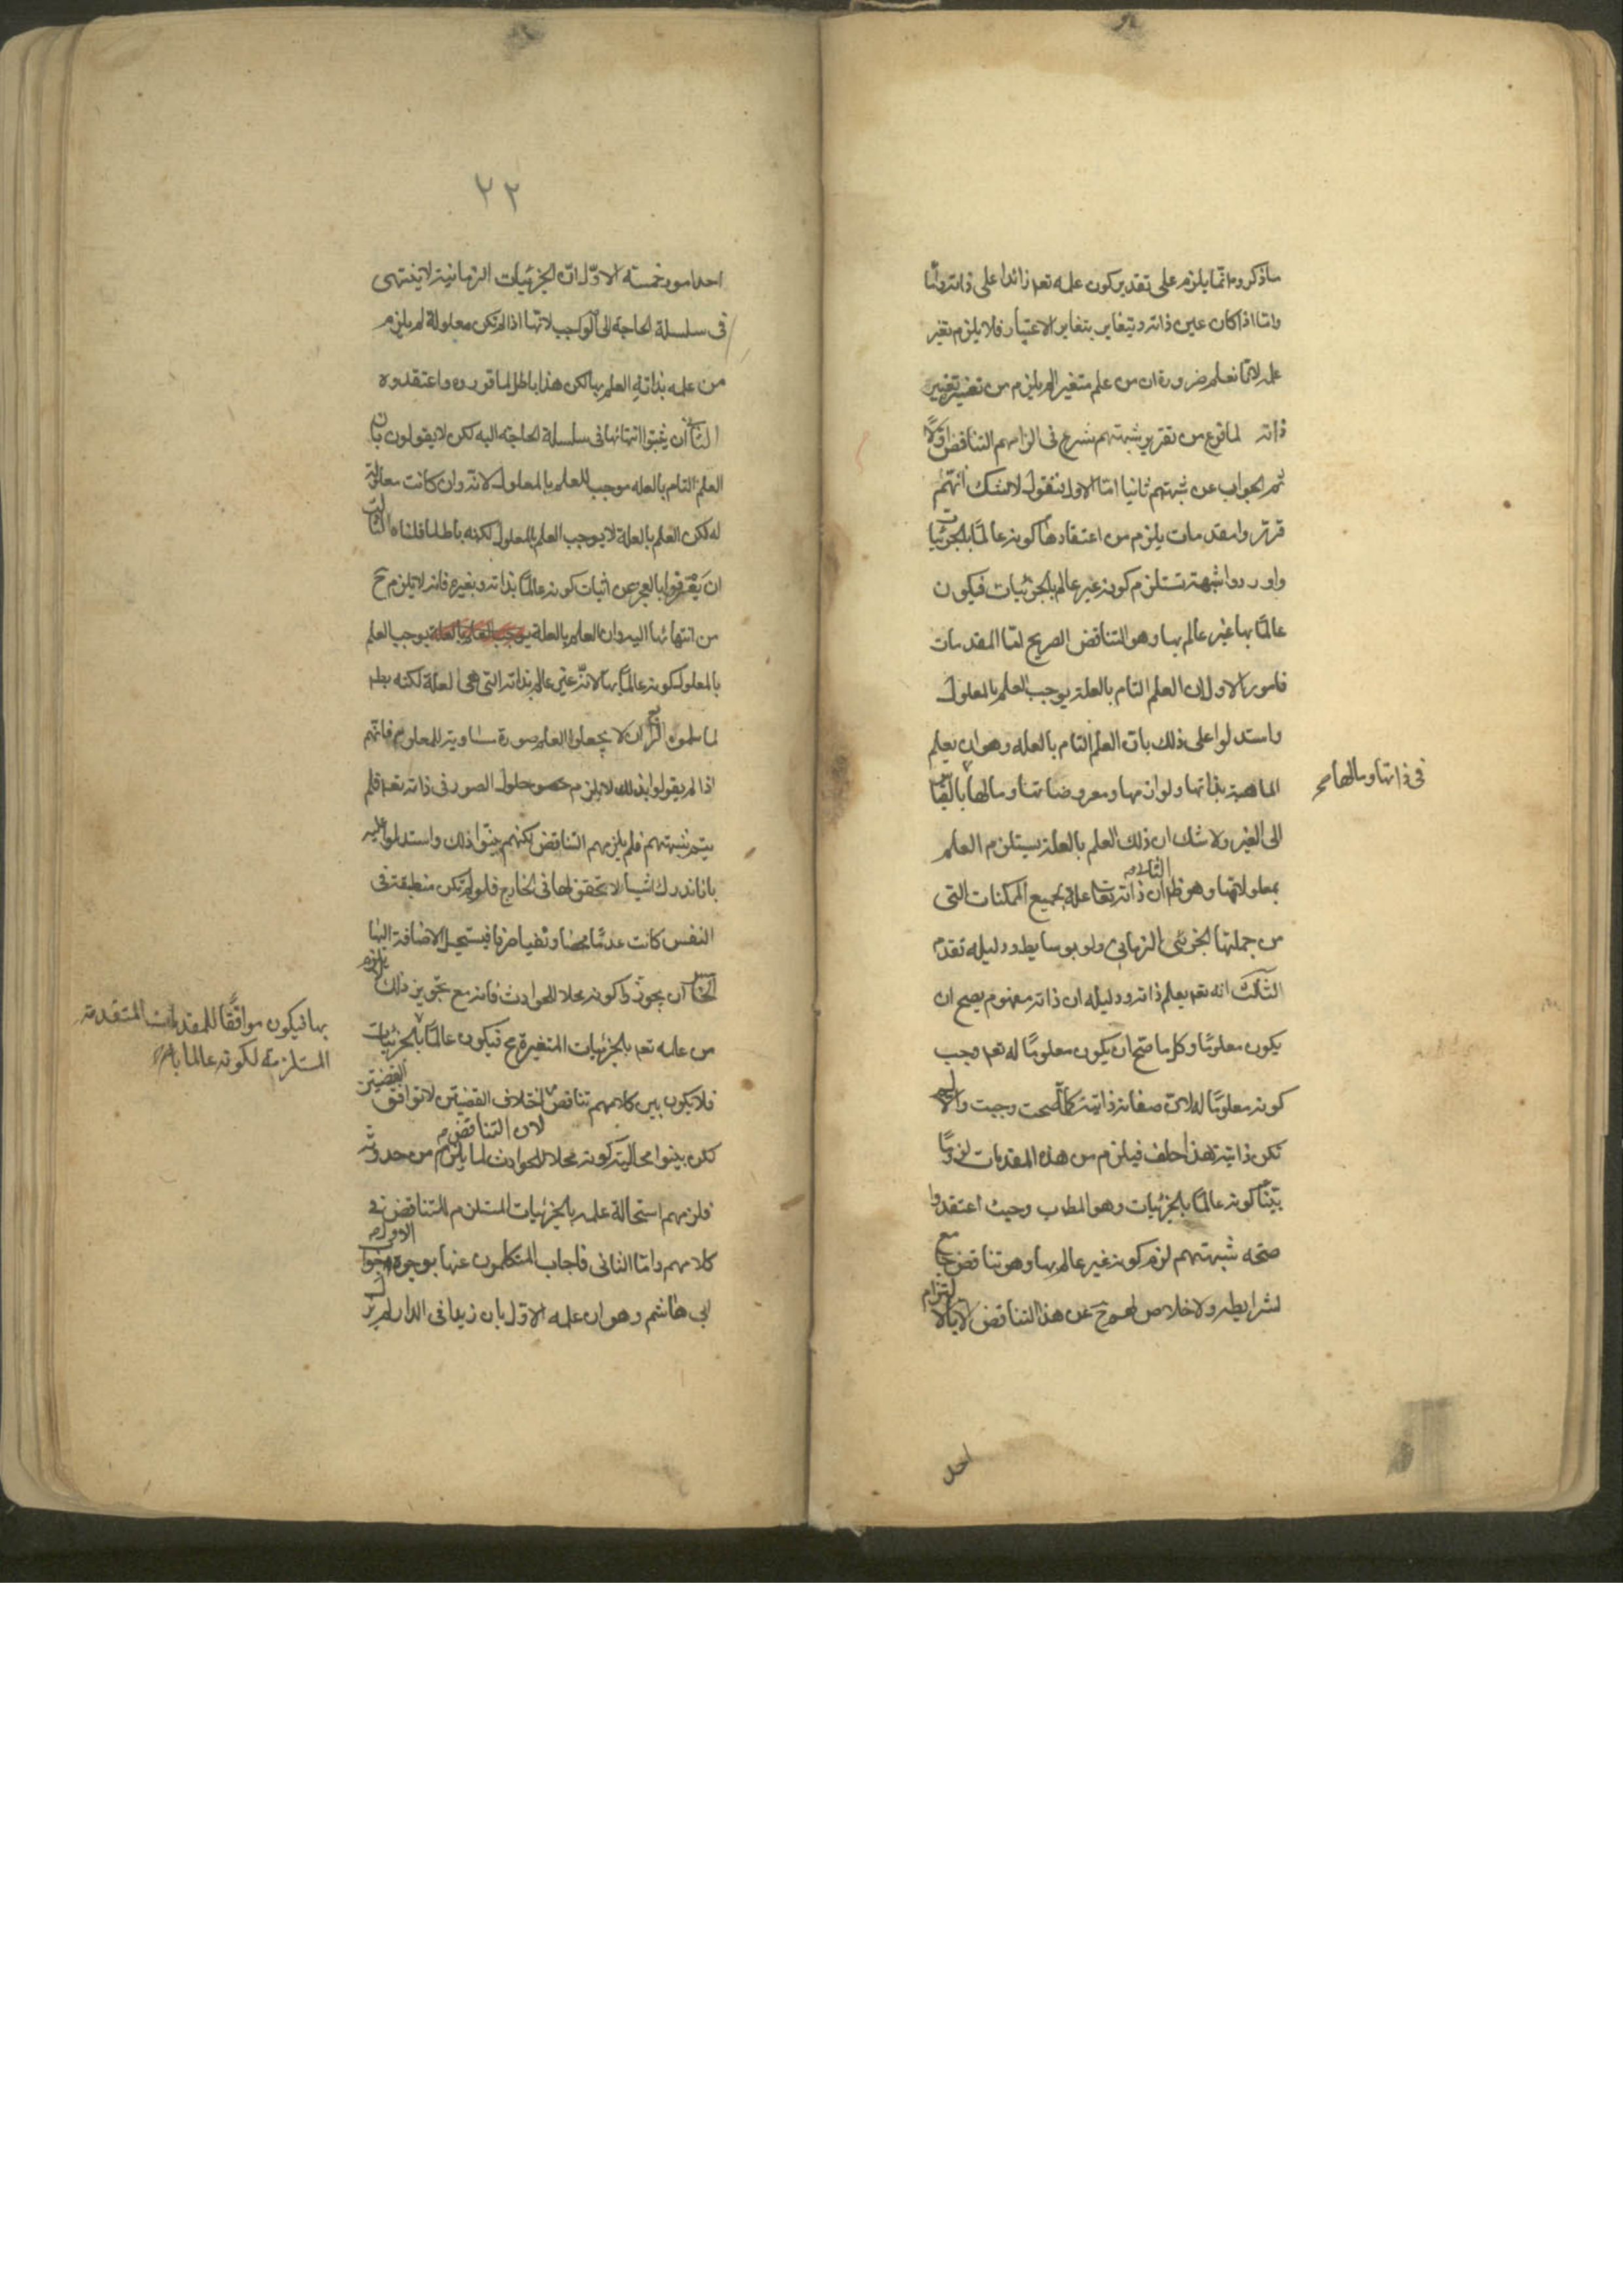 ما ذكروه انما يلزم على تقدير كون علمه تعه زائدا على ذاته
واما اذا كان عين ذاته ويتغاير بتغاير الاعتبار فلا يلزم تغير
علمه لانا نعلم ضرورة ان من علم متغيرا لم يلزم من تغيره تغير
ذاته لما فرغ من تقرير شبهتهم شرع فى الزامهم التناقض اولا
ثم الجواب عن شبهتهم ثانيا اما الاول فنقول لا شك انهم
قرروا مقدمات يلزم من اعتقادها كونه عالما بالجزئيات
واوردوا شبهة تستلزم كونه غير عالم بالجزئيات فيكون
عالما بها غير عالم بها وهو التناقض الصريح اما المقدمات
فامور الاول ان العلم التام بالعلة يوجب العلم بالمعلول
واستدلوا على ذلك بان العلم التام بالعله وهو ان يعلم
الماهية بذاتها ولوازمها ومعروضاتها وما لها بالقياس
فى ذاتها وما لها صح
الى الغير ولا شك ان ذلك العلم بالعلة يستلزم العلم
بمعلولاتها وهو ظ الثانى ان ذاته تعا علة لجميع الممكنات التى
من جملتها الجزئى الزمانى ولو بوسايط ودليله تقدم
الثالث انه تعه يعلم ذاته ودليله ان ذاته مفهوم يصح ان
يكون معلوما وكل ما صح ان يكون معلوما له تعه وجب
كونه معلوما له لان صفاته ذاتية كلما صحت وجبت والا لم
تكن ذاتية هذا خلف فيلزم من هذه المقدمات لزوما
بينا كونه عالما بالجزئيات وهو المطلوب وحيث اعتقدوا
صحه شبهتهم لزم كونه غير عالم بها وهو تناقض جامع
لشرايطه ولا خلاص لهم ح عن هذا التناقض الا بالتزام
احد
٢٢
احد امور خمسة الاول ان الجزئيات الزمانية لا ينتهى
فى سلسلة الحاجة الى الواجب لانها اذا لم تكن معلولة لم يلزم
من علمه بذاته العلم بها لكن هذا باطل لما قرروه واعتقدوه
الثانى ان يثبتوا انتهائها فى سلسلة الحاجة اليه لكن لا يقولون بان
العلم التام بالعله موجب للعلم بالمعلول لانه وان كانت معلولة
له لكن العلم بالعلة لا يوجب العلم بالمعلول لكنه باطل لما قلناه الثالث
ان يعترفوا بالعجز عن اثبات كونه عالما بذاته وبغيره فانه لا يلزم ح
من انتهائها اليه وان العلم بالعلة يوجب العلم
بالمعلول كونه عالما بها لانه غير عالم بذاته التى هى العلة لكنه بط
لما سلموه الرابع ان لا يجعلوا العلم صورة مساوية للمعلوم فانهم
اذا لم يقولوا بذلك لا يلزم حلول الصور فى ذاته تعه فلم
يتم شبهتهم فلم يلزمهم التناقض لكنهم بينوا ذلك واستدلوا عليه
بانا ندرك اشياء لا تحقق لها فى الخارج فلو لم تكن منطبقة فى
النفس كانت عدما محضا ونفيا صرفا فيستحيل الاضافة اليها
الخامس ان يجوزوا كونه محلا للحوادث فانه مع تجويز ذلك لا يلزم
من علمه تعه بالجزئيات المتغيرة مح فيكون عالما بالجزئيات
بها فيكون موافقا للمقدمات المتقدمة
المستلزمة لكونه عالما بها
فلا يكون بين كلامهم تناقض لان التناقض اختلاف القضيتين لا توافق القضيتين
لكن بينوا محالية كونه محلا للحوادث لما يلزم من حدوثه
فلزمهم استحالة علمه بالجزئيات المستلزم للتناقض فى
كلامهم واما الثانى فاجاب المتكلمون عنها بوجوه الاول جواب
ابى هاشم وهو ان علمه الاول بان زيدا فى الدار لم يزل